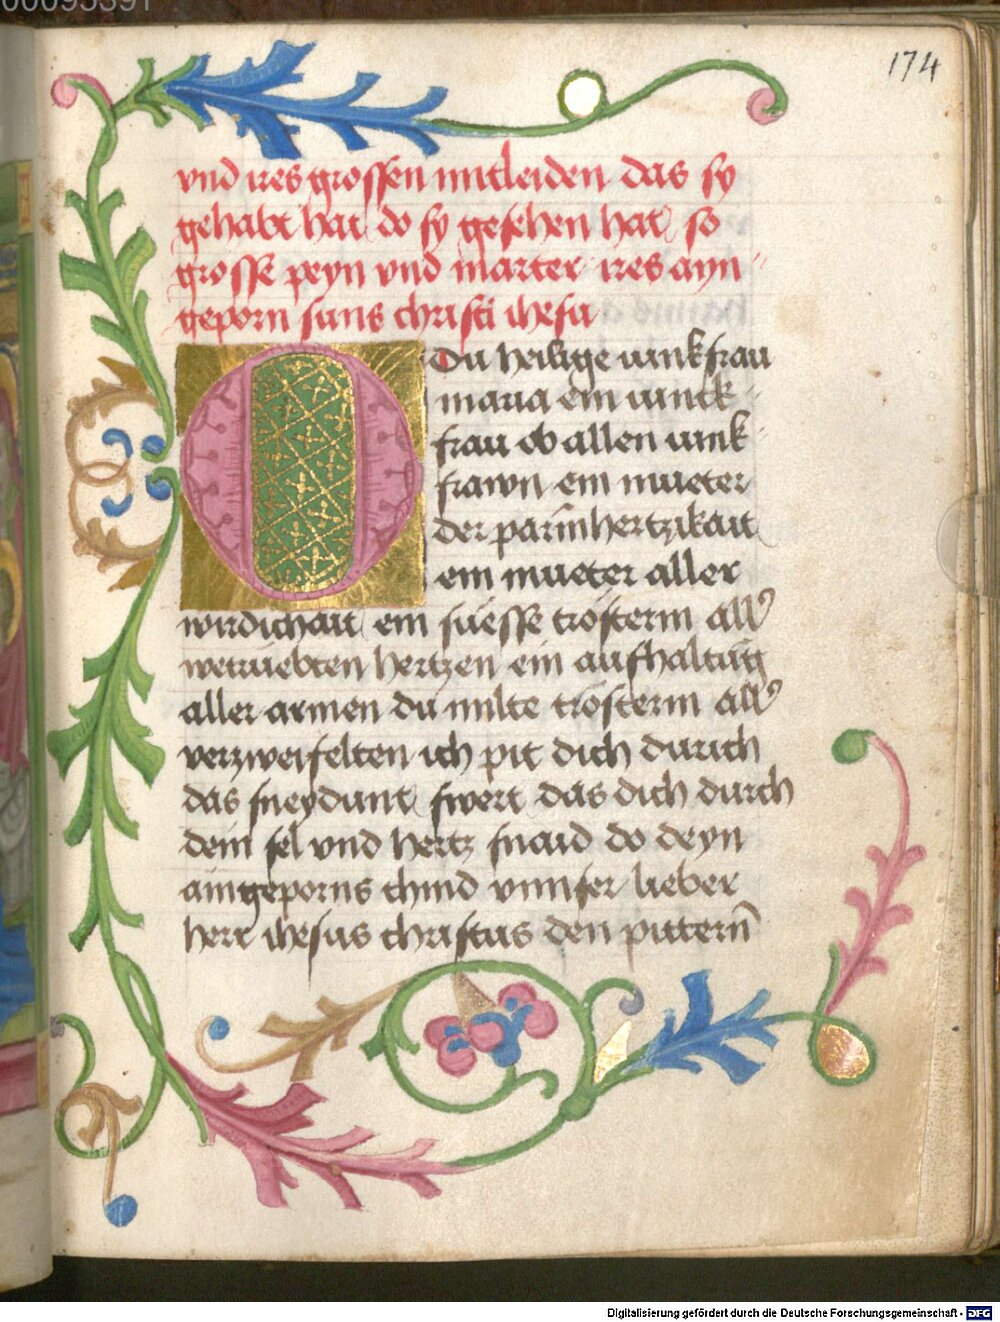 00095391
174
vnd ires grossen mitleiden das sy
gehabt hat do sy gesehen hat so
grosse peyn vnd marter ires ayn
geporn suns christi ihesu
O Du heilige iunkfrau
maria ein iunck
frau ob allen iunk
frawn ein mueter
der parmhertzikait
ein mueter aller
wirdichait ein suesse trosterin all
wetruebten hertzen ein aufhaltūg
aller armen du milte trosterin all
verzweifelten ich pit dich durich
das sneydunt swert das dich durch
dein sel vnd hertz snaid do deyn
aingeporns chind vnnser lieber
herr ihesus christus den pittern̄
Digitalisierung gefördert durch die Deutsche Forschungsgemeinschaft - DFG